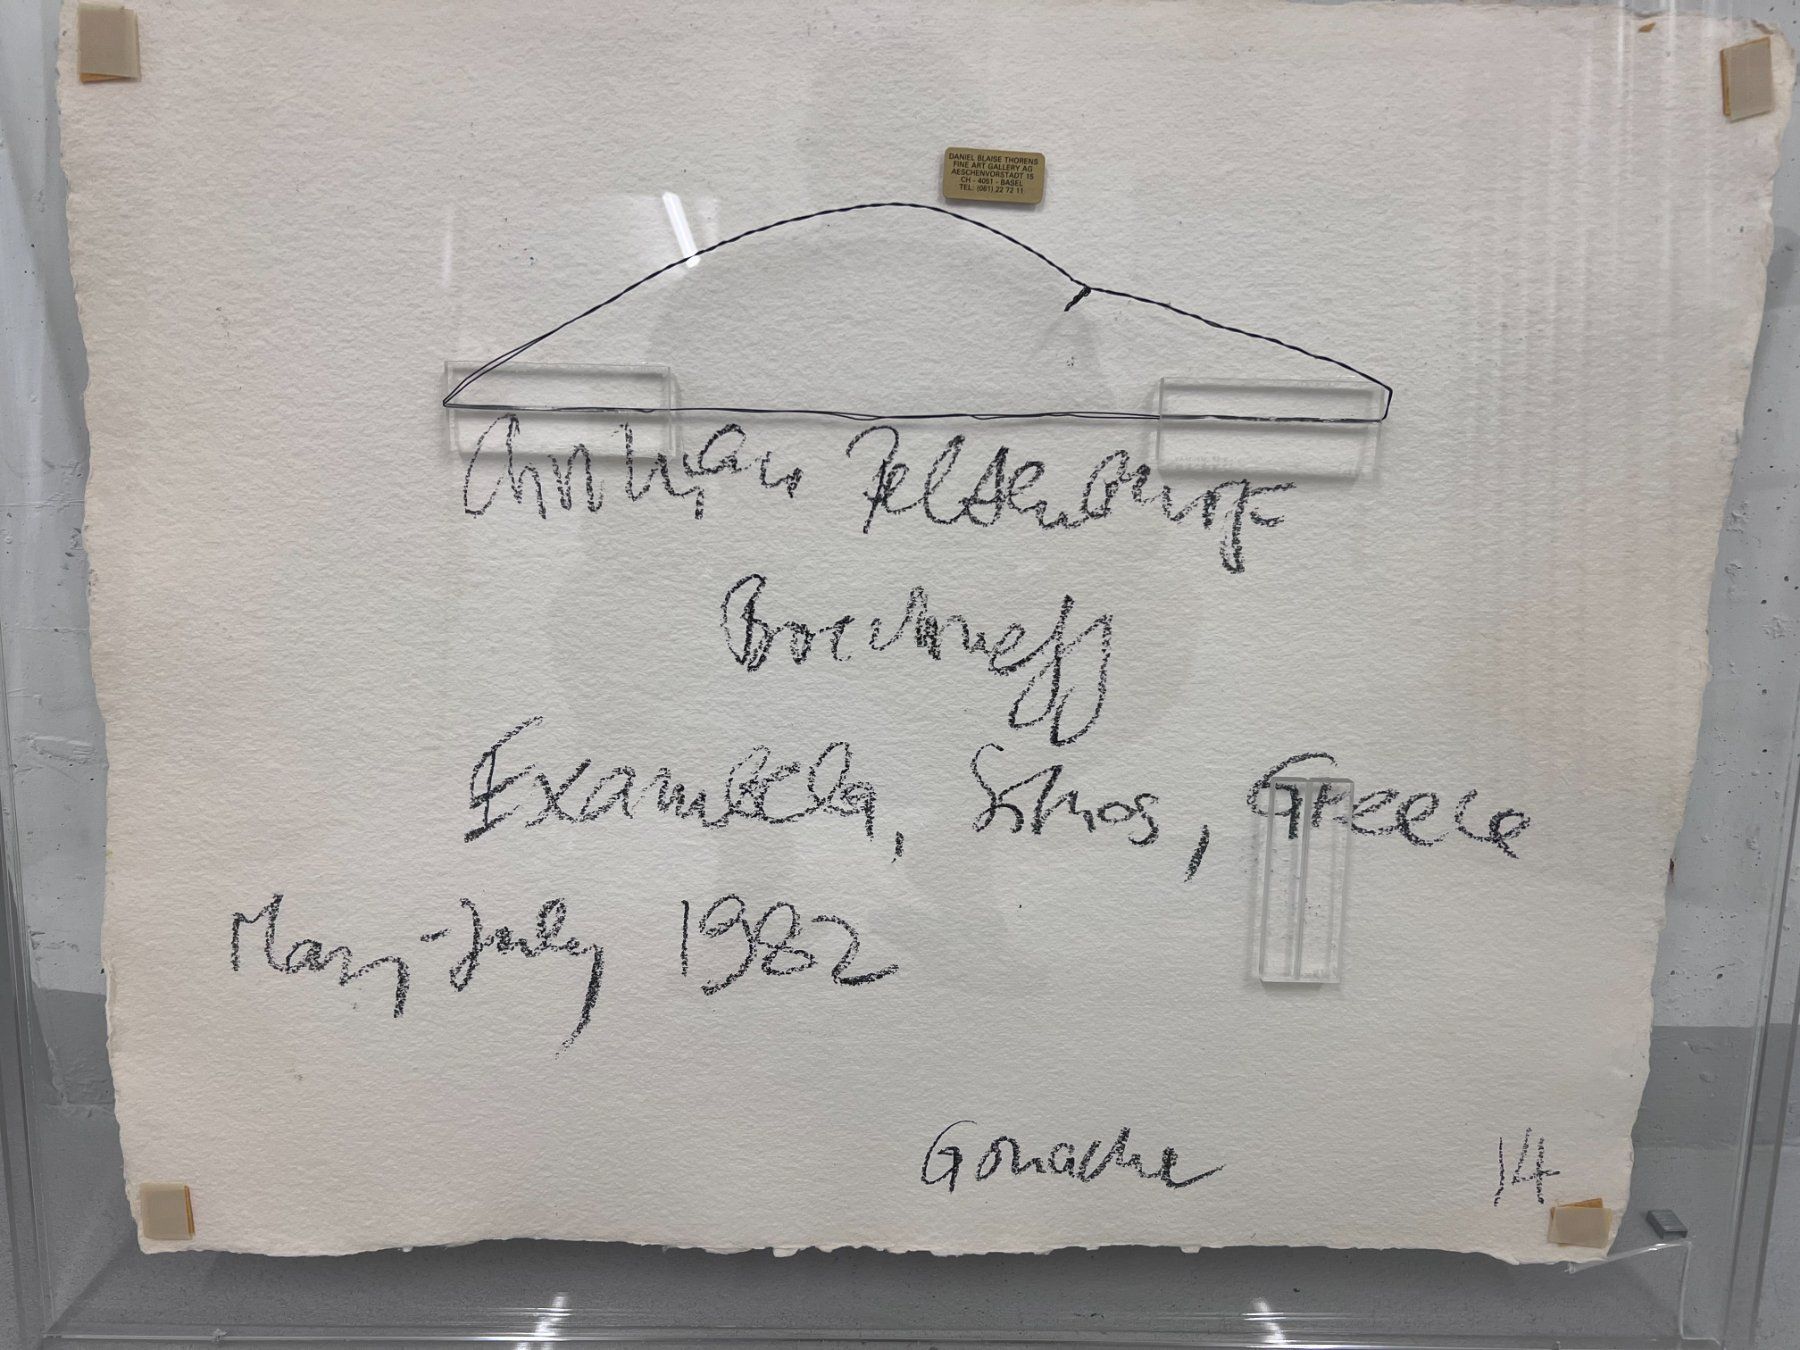 DANIEL BLAISE THORENS
FINE ART GALLERY AG
AESCHENVORSTADT 15
CH - 4051 - BASEL
TEL: (061) 22 72 11
Christian Peltenburg
Brechneff
Exambela, Sifnos, Greece
May-July 1982
Gouache
14